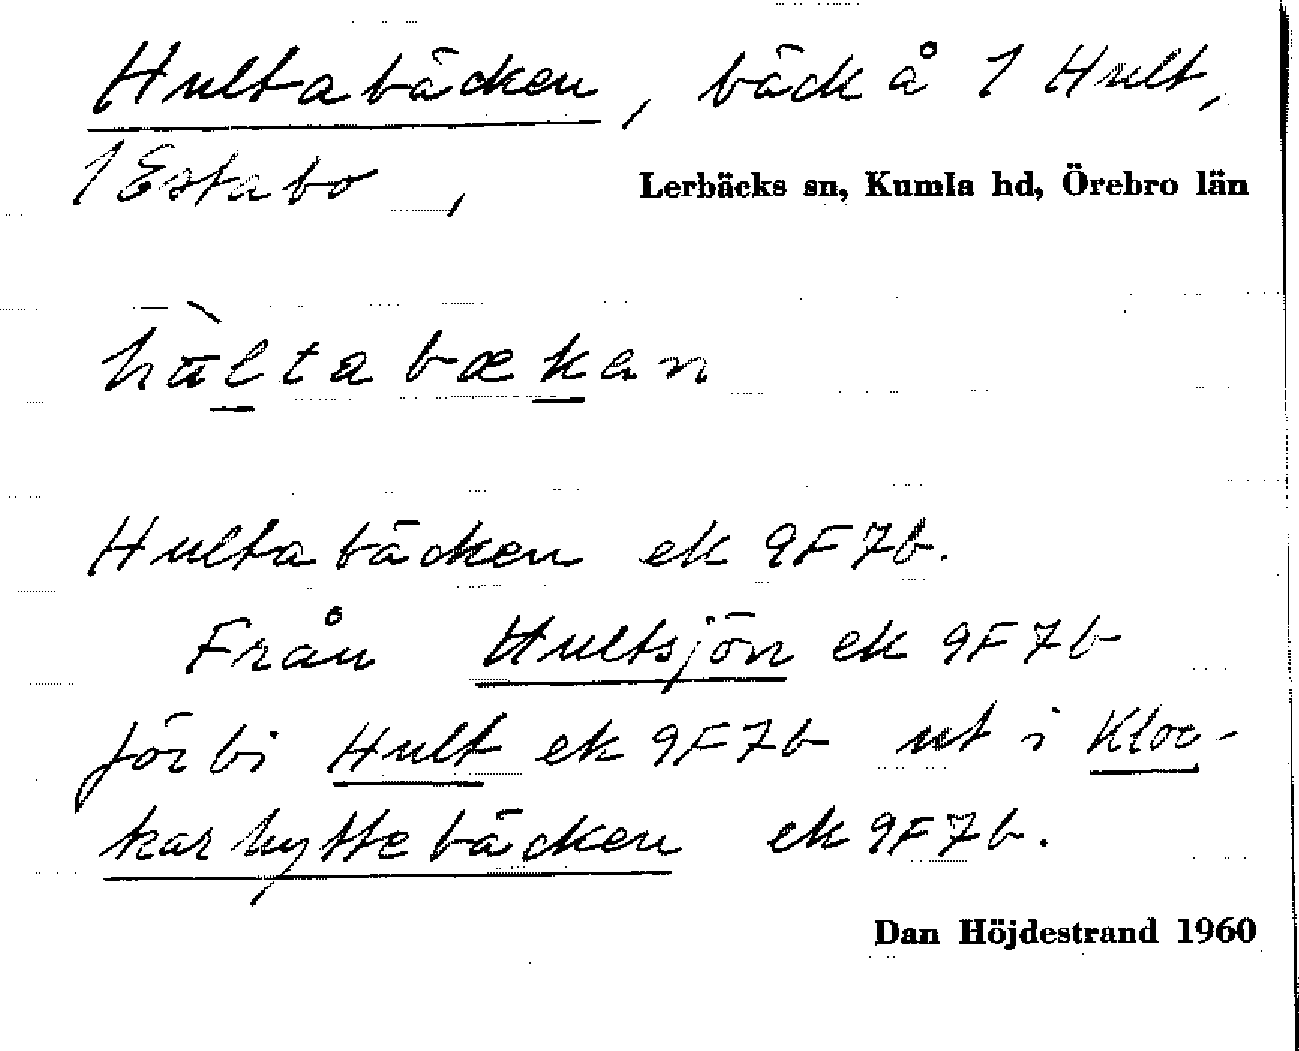 Hultabäcken, bäck å 1 Hult,
1 Estabo, Lerbäcks sn, Kumla hd, Örebro län
hùltabækan
Hultabäcken ek 9F7b.
Från Hultsjön ek 9F7b
förbi Hult ek 9F7b ut i Kloc-
karhyttebäcken ek 9F7b.
Dan Höjdestrand 1960